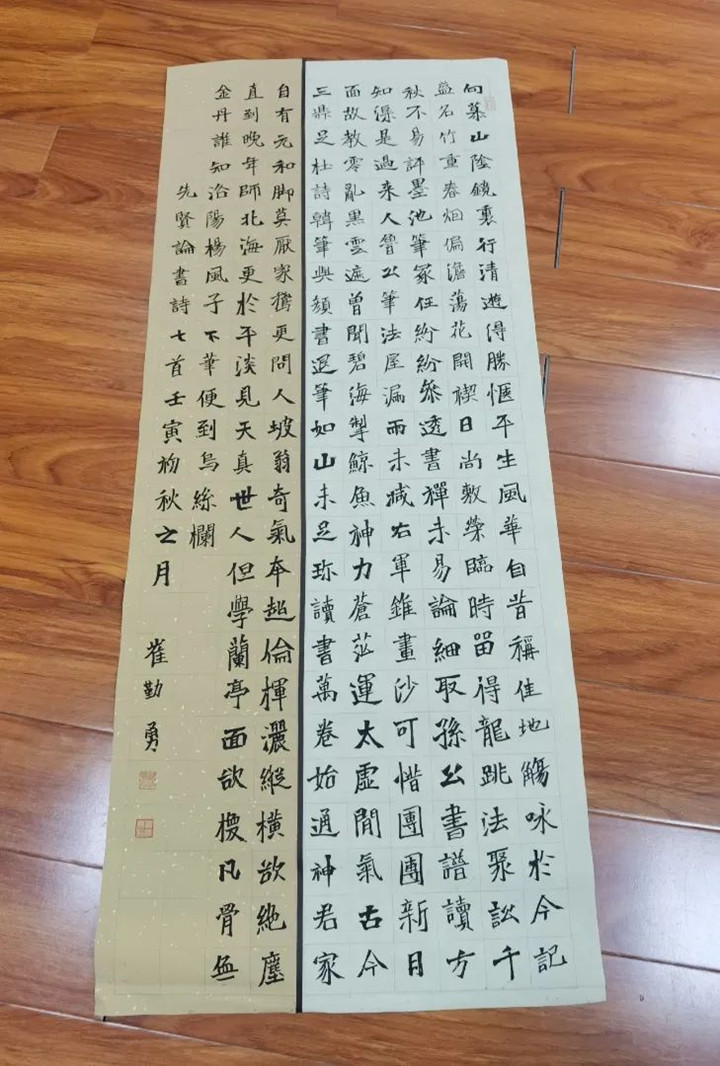 向慕山陰鏡裏行清遊得勝愜平生風華自昔稱佳地觴咏於今記
益名竹重春烟偏澹蕩花開禊日尚敷榮臨時留得龍跳法聚訟千
秋不易評墨池筆冢任紛紛參透書禪未易論細取孫公書譜讀方
知渠是過来人魯公筆法屋漏雨未減右軍錐畫沙可惜團團新月
面故教零亂黑雲遮曾聞碧海掣鯨魚神力蒼茫運太虛間氣古今
三鼎足杜詩韓筆與顏書退筆如山未足珎讀書萬卷始通神君家
自有元和脚莫厭家雞更問人坡翁奇氣本超倫揮灑縱橫欲絶塵
直到晚年師北海更於平淡見天真世人但學蘭亭面欲換凡骨無
金丹誰知洛陽楊風子下筆便到烏絲欄
先賢論書詩七首壬寅初秋之月 崔勤勇